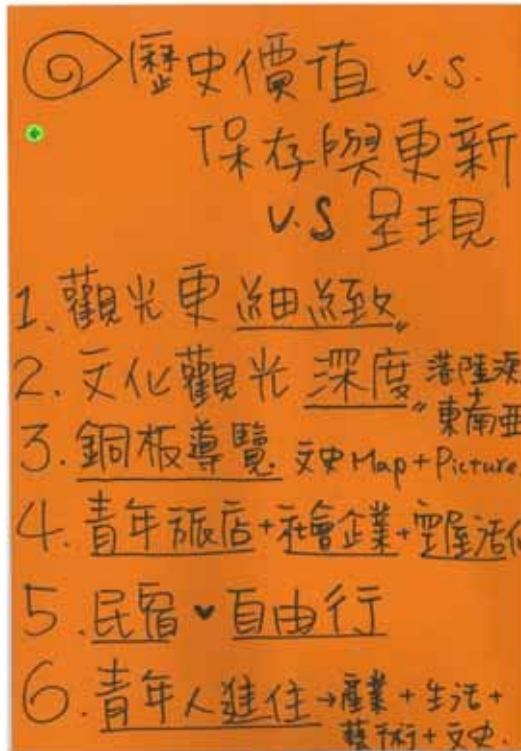 歷史價值 v.s.
保存與更新
v.s 呈現
1. 觀光更細緻
2. 文化觀光深度 港陸澳
+東南亞
3. 銅板導覽 文史Map+Picture
4. 青年旅店+社會企業+空屋活化
5. 民宿 自由行
6. 青年人進住→產業+生活+
藝術+文史.